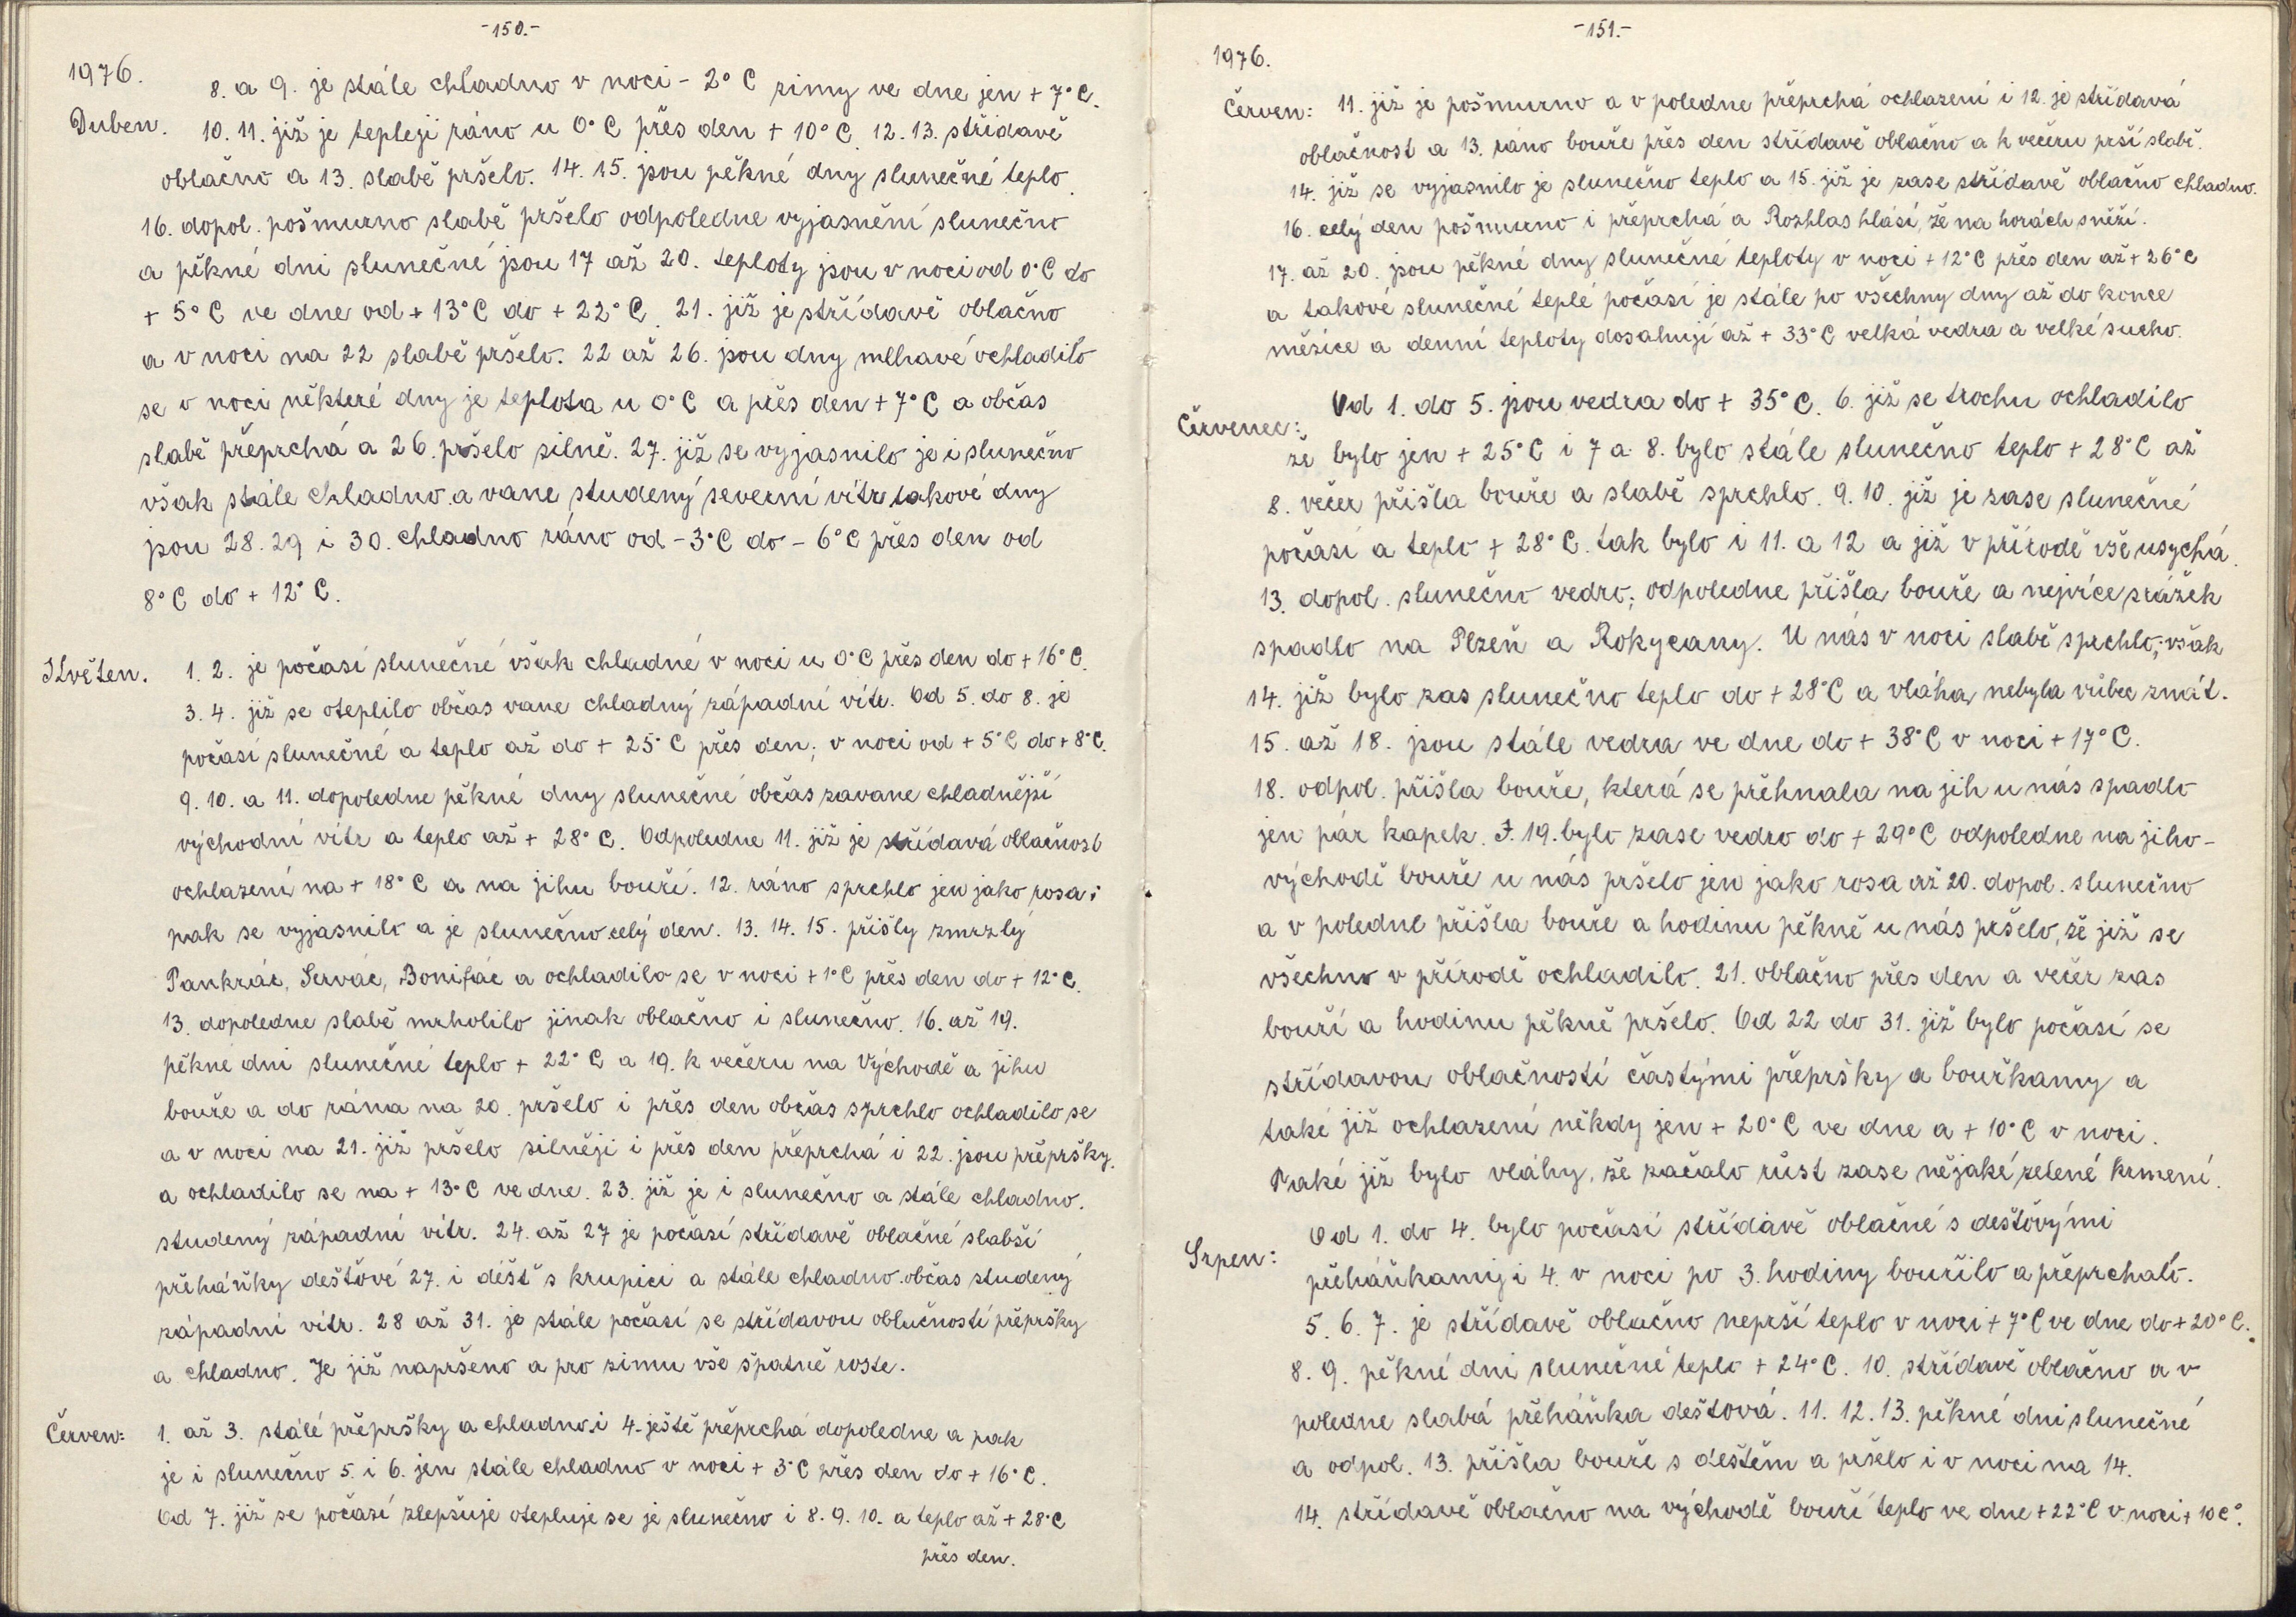 -150.-
1976.
8. a 9. je stále chladno v noci - 2° C zimy ve dne jen + 7° C.
Duben. 10. 11. již je tepleji ráno u 0° C přes den + 10° C. 12. 13. střídavě
oblačno a 13. slabě pršelo. 14. 15. jsou pěkné dny slunečné teplo.
16. dopol. pošmurno slabě pršelo odpoledne vyjasnění slunečno
a pěkné dni slunečné jsou 17 až 20. teploty jsou v noci od 0° C do
+ 5° C ve dne od + 13° C do + 22° C. 21. již je střídavě oblačno
a v noci na 22 slabě pršelo. 22 až 26. jsou dny mlhavé ochladilo
se v noci některé dny je teplota u 0° C a přes den + 7° C a občas
slabě přeprchá a 26. pršelo silně. 27. již se vyjasnilo je i slunečno
však stále chladno a vane studený severní vítr takové dny
jsou 28. 29 i 30. chladno ráno od - 3° C do - 6° C přes den od
8° C do + 12° C.
Květen. 1. 2. je počasí slunečné však chladné v noci u 0° C přes den do + 16° C.
3. 4. již se oteplilo občas vane chladný západní vítr. Od 5. do 8. je
počasí slunečné a teplo až do + 25° C přes den; v noci od + 5° C do + 8° C.
9. 10. a 11. dopoledne pěkné dny slunečné občas zavane chladnější
východní vítr a teplo až + 28° C. Odpoledne 11. již je střídavá oblačnost
ochlazení na + 18° C a na jihu bouří. 12. ráno sprchlo jen jako rosa;
pak se vyjasnilo a je slunečno celý den. 13. 14. 15. přišly zmrzlý
Pankrác, Servác, Bonifác a ochladilo se v noci + 1° C přes den do + 12° C.
13. dopoledne slabě mrholilo jinak oblačno i slunečno. 16. až 19.
pěkné dni slunečné teplo + 22° C a 19. k večeru na Východě a jihu
bouře a do rána na 20. pršelo i přes den občas sprchlo ochladilo se
a v noci na 21. již pršelo silněji i přes den přeprchá i 22. jsou přepršky.
a ochladilo se na + 13° C ve dne. 23. již je i slunečno a stále chladno.
studený západní vítr. 24. až 27 je počasí střídavě oblačné slabší
přeháňky dešťové 27. i déšť s krupici a stále chladno občas studený
západní vítr. 28 až 31. je stále počasí se střídavou oblačností přepršky
a chladno. Je již napršeno a pro zimu vše špatně roste.
Červen: 1. až 3. stálé přepršky a chladno i 4. ještě přeprchá dopoledne a pak
je i slunečno 5. i 6. jen stále chladno v noci + 3° C přes den do + 16° C.
Od 7. již se počasí zlepšuje otepluje se je slunečno i 8. 9. 10. a teplo až + 28° C
přes den.
-151.-
1976.
Červen: 11. již je pošmurno a v poledne přeprchá ochlazení i 12. je střídavá
oblačnost a 13. ráno bouře přes den střídavě oblačno a k večeru prší slabě.
14. již se vyjasnilo je slunečno teplo a 15. již je zase střídavě oblačno chladno.
16. celý den pošmurno i přeprchá a Rozhlas hlásí, že na horách sněží.
17. až 20. jsou pěkné dny slunečné teploty v noci + 12° C přes den až + 26° C
a takové slunečné teplé počasí je stále po všechny dny až do konce
měsíce a denní teploty dosahují až + 33° C velká vedra a velké sucho.
Od 1. do 5. jsou vedra do + 35° C. 6. již se trochu ochladilo
Červenec: že bylo jen + 25° C i 7 a 8. bylo stále slunečno teplo + 28° C až
8. večer přišla bouře a slabě sprchlo. 9. 10. již je zase slunečné
počasí a teplo + 28° C. tak bylo i 11. a 12 a již v přírodě vše usychá.
13. dopol. slunečno vedro; odpoledne přišla bouře a nejvíce srážek
spadlo na Plzeň a Rokycany. U nás v noci slabě sprchlo; však
14. již bylo zas slunečno teplo do + 28° C a vláha nebyla vůbec znát.
15. až 18. jsou stále vedra ve dne do + 38° C v noci + 17° C.
18. odpol. přišla bouře, která se přehnala na jih u nás spadlo
jen pár kapek. I 19. bylo zase vedro do + 29° C odpoledne na jiho-
východě bouře u nás pršelo jen jako rosa až 20. dopol. slunečno
a v poledne přišla bouře a hodinu pěkně u nás pršelo, že již se
všechno v přírodě ochladilo. 21. oblačno přes den a večer zas
bouří a hodinu pěkně pršelo. Od 22 do 31. již bylo počasí se
střídavou oblačností častými přepršky a bouřkamy a
také již ochlazení někdy jen + 20° C ve dne a + 10° C v noci.
Také již bylo vláhy, že začalo růst zase nějaké zelené krmení.
Od 1. do 4. bylo počasí střídavě oblačné s dešťovými
Srpen: přeháňkami; i 4. v noci po 3. hodiny bouřilo a přeprchalo.
5. 6. 7. je střídavě oblačno neprší teplo v noci + 7° C ve dne do + 20° C.
8. 9. pěkné dni slunečné teplo + 24° C. 10. střídavě oblačno a v
poledne slabá přeháňka dešťová. 11. 12. 13. pěkné dni slunečné
a odpol. 13. přišla bouře s deštěm a pršelo i v noci na 14.
14. střídavě oblačno na východě bouří teplo ve dne + 22° C v noci + 10 C°.